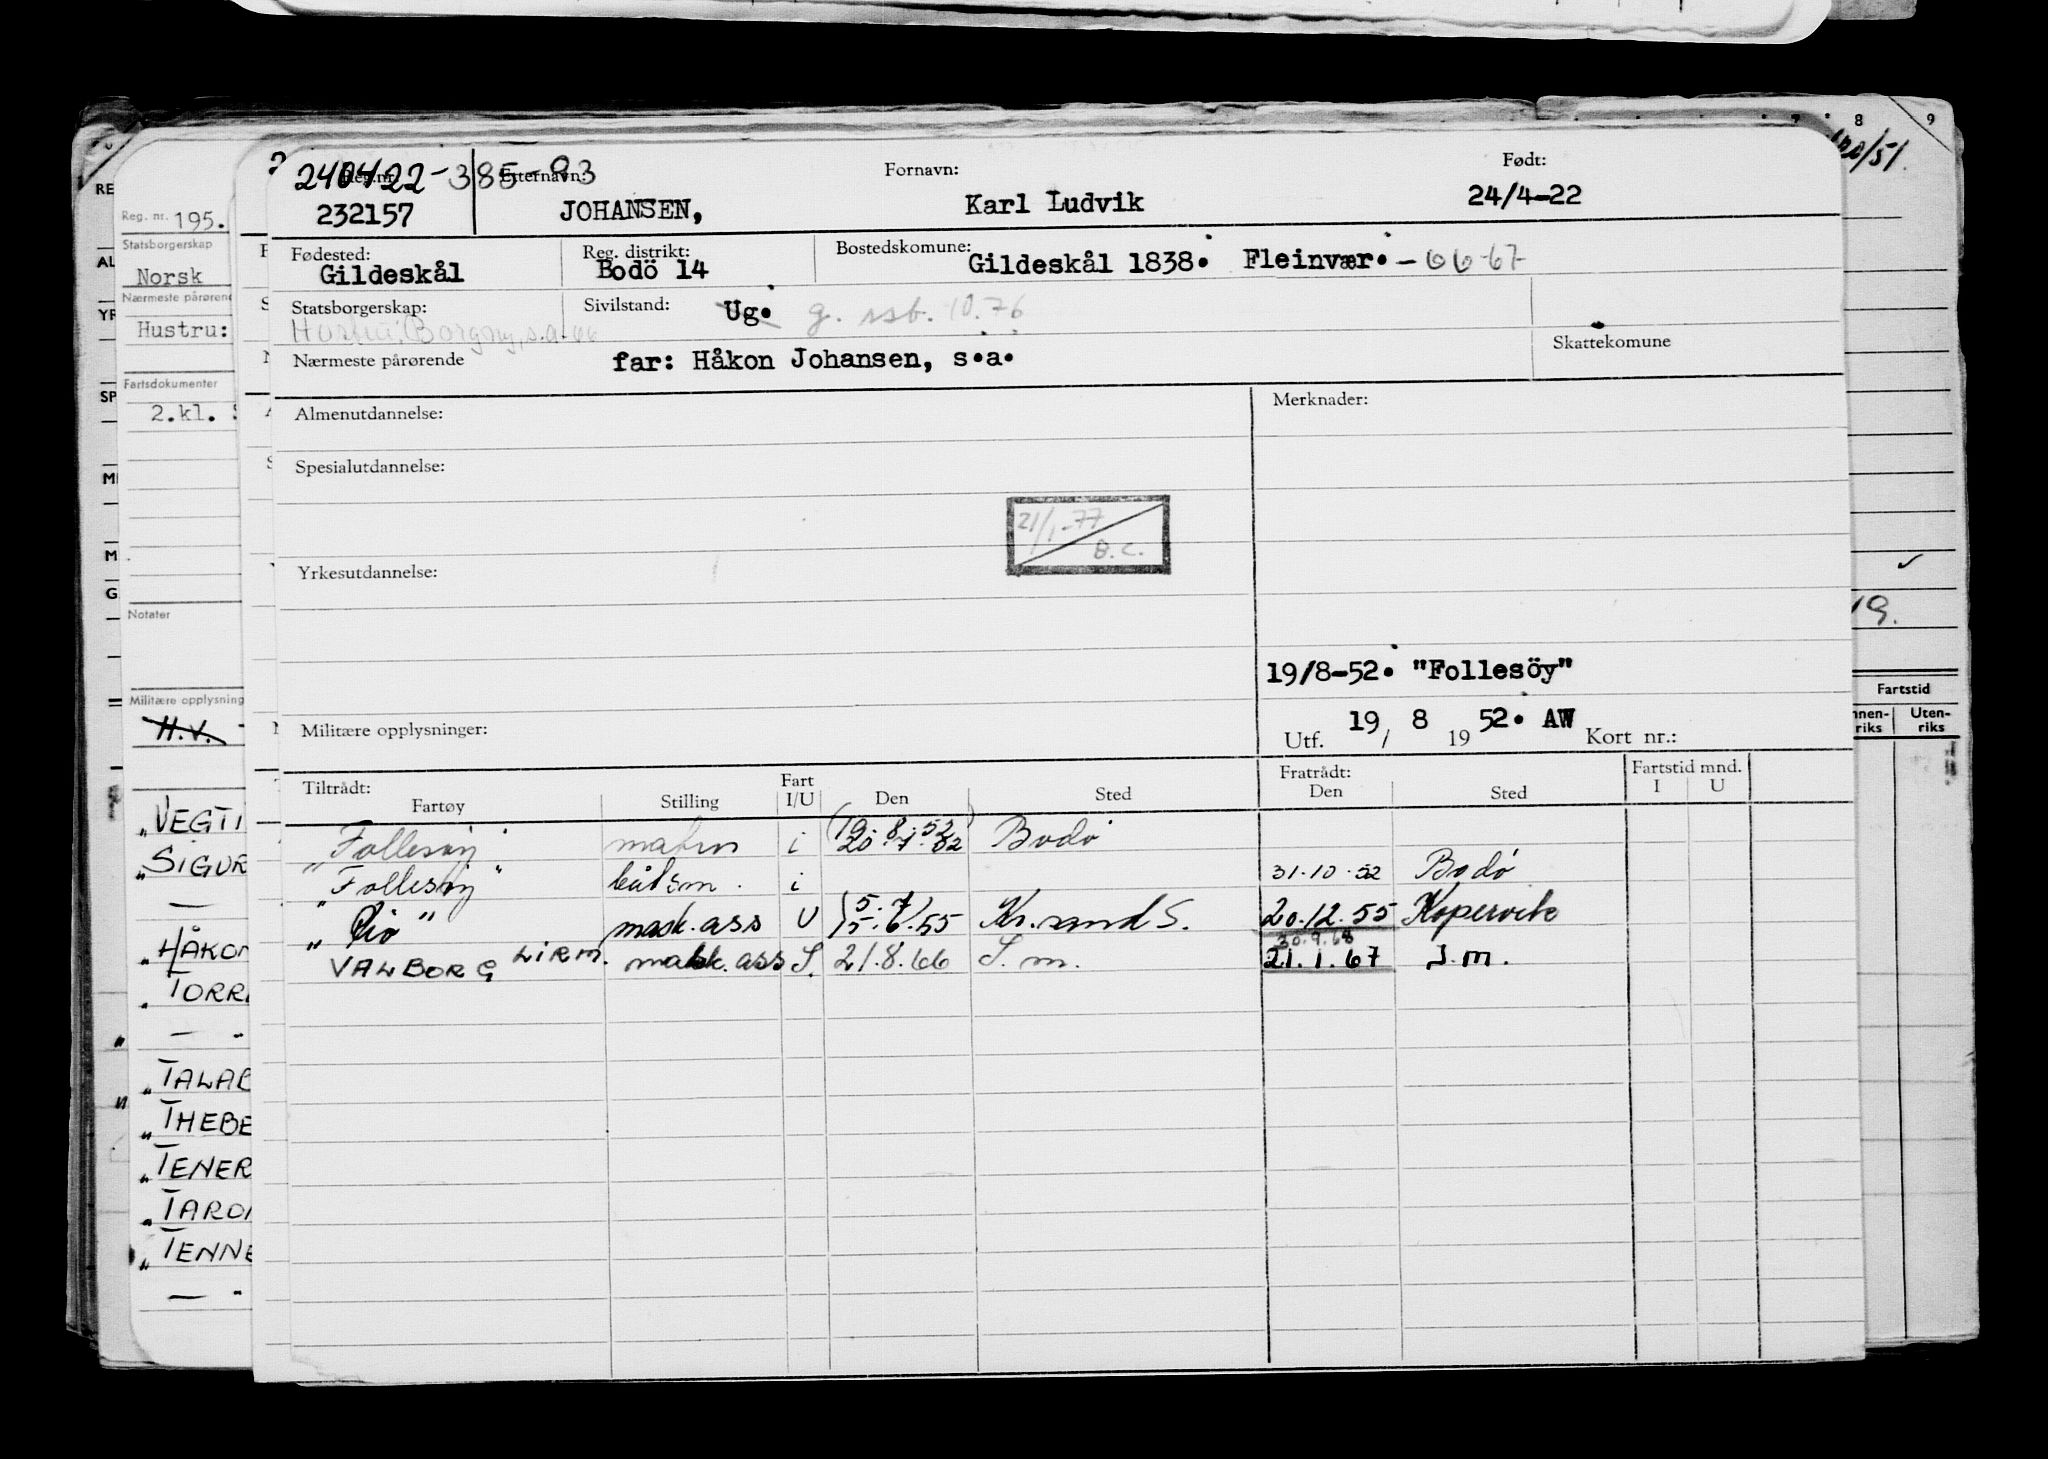 240422-385-93
Reg.nr. Etternavn: Fornavn: Født:
232157 JOHANSEN, Karl Ludvik 24/4-22
Fødested: Reg. distrikt: Bostedskomune:
Gildeskål Bodö 14 Gildeskål 1838. Fleinvær. - 66-67
Statsborgerskap: Sivilstand: Ug. g. ssb. 10.76
Hustru: Borgny, s.a. 66
Nærmeste pårørende far: Håkon Johansen, s.a. Skattekomune
Almenutdannelse: Merknader:
Spesialutdannelse:
21/1-77
B.C.
Yrkesutdannelse:
19/8-52. "Follesöy"
Militære opplysninger: Utf. 19 / 8 19 52. AW Kort nr.:
Tiltrådt: Fart Fratrådt: Fartstid mnd.
Fartøy Stilling I/U Den Sted Den Sted I U
(19.8.52)
"Follesöy" matros i 20.7.52 Bodö
"Follesöy" båtsm. i 31.10.52 Bodö
(5.7)
"Rio" mask.ass U 15.6.55 Kr.sand S. 20.12.55 Kopervik
30.9.68
VALBORG LIRM. mask.ass S. 21.8.66 S.m. 21.1.67 S.m.
Reg. nr. 195.
Statsborgerskap
Norsk
Nærmeste pårørend
Hustru:
Fartsdokumenter
2.kl. S
Notater
Militære opplysning
H.V. -
"VEGTI
"SIGUR
—
"HÅKON
"TORRA
— "
"TALAB
"THEBE
"TENER
"TARON
"TENNE
— "
RE
AL
YR
SP
M
M
G
7 8 9
/51.
19.
Fartstid
Innen-riks Uten-riks